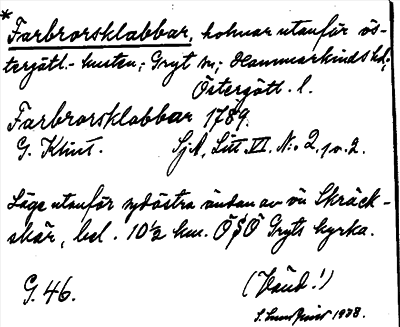 * Farbrorsklabbar, holmar utanför ös-
tergötl.-kusten; Gryt sn; Hammarkinds hd;
Östergötl. l.
Farbrorsklabbar 1789.
G. Klint. SjA, Litt. VI. No. 2, 1 o. 2.
Läge utanför sydöstra ändan av ön Skräck-
skär, bel. 10½ km. OSO Gryts kyrka.
G. 46. (Vänd!)
1938.